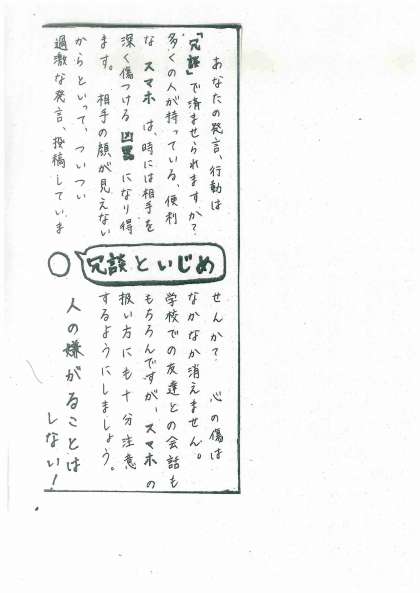 冗談といじめ
あなたの発言、行動は
「冗談」で済ませられますか?
多くの人が持っている、便利
な スマホ は、時には相手を
深く傷つける 凶器 になり得
ます。 相手の顔が見えない
からといって、ついつい
過激な発言、投稿していま
せんか? 心の傷は
なかなか消えません。
学校での友達との会話も
もちろんですが、スマホの
扱い方にも十分注意
するようにしましょう。
人の嫌がることは
しない!